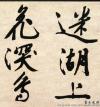 迷湖上
花深鳥